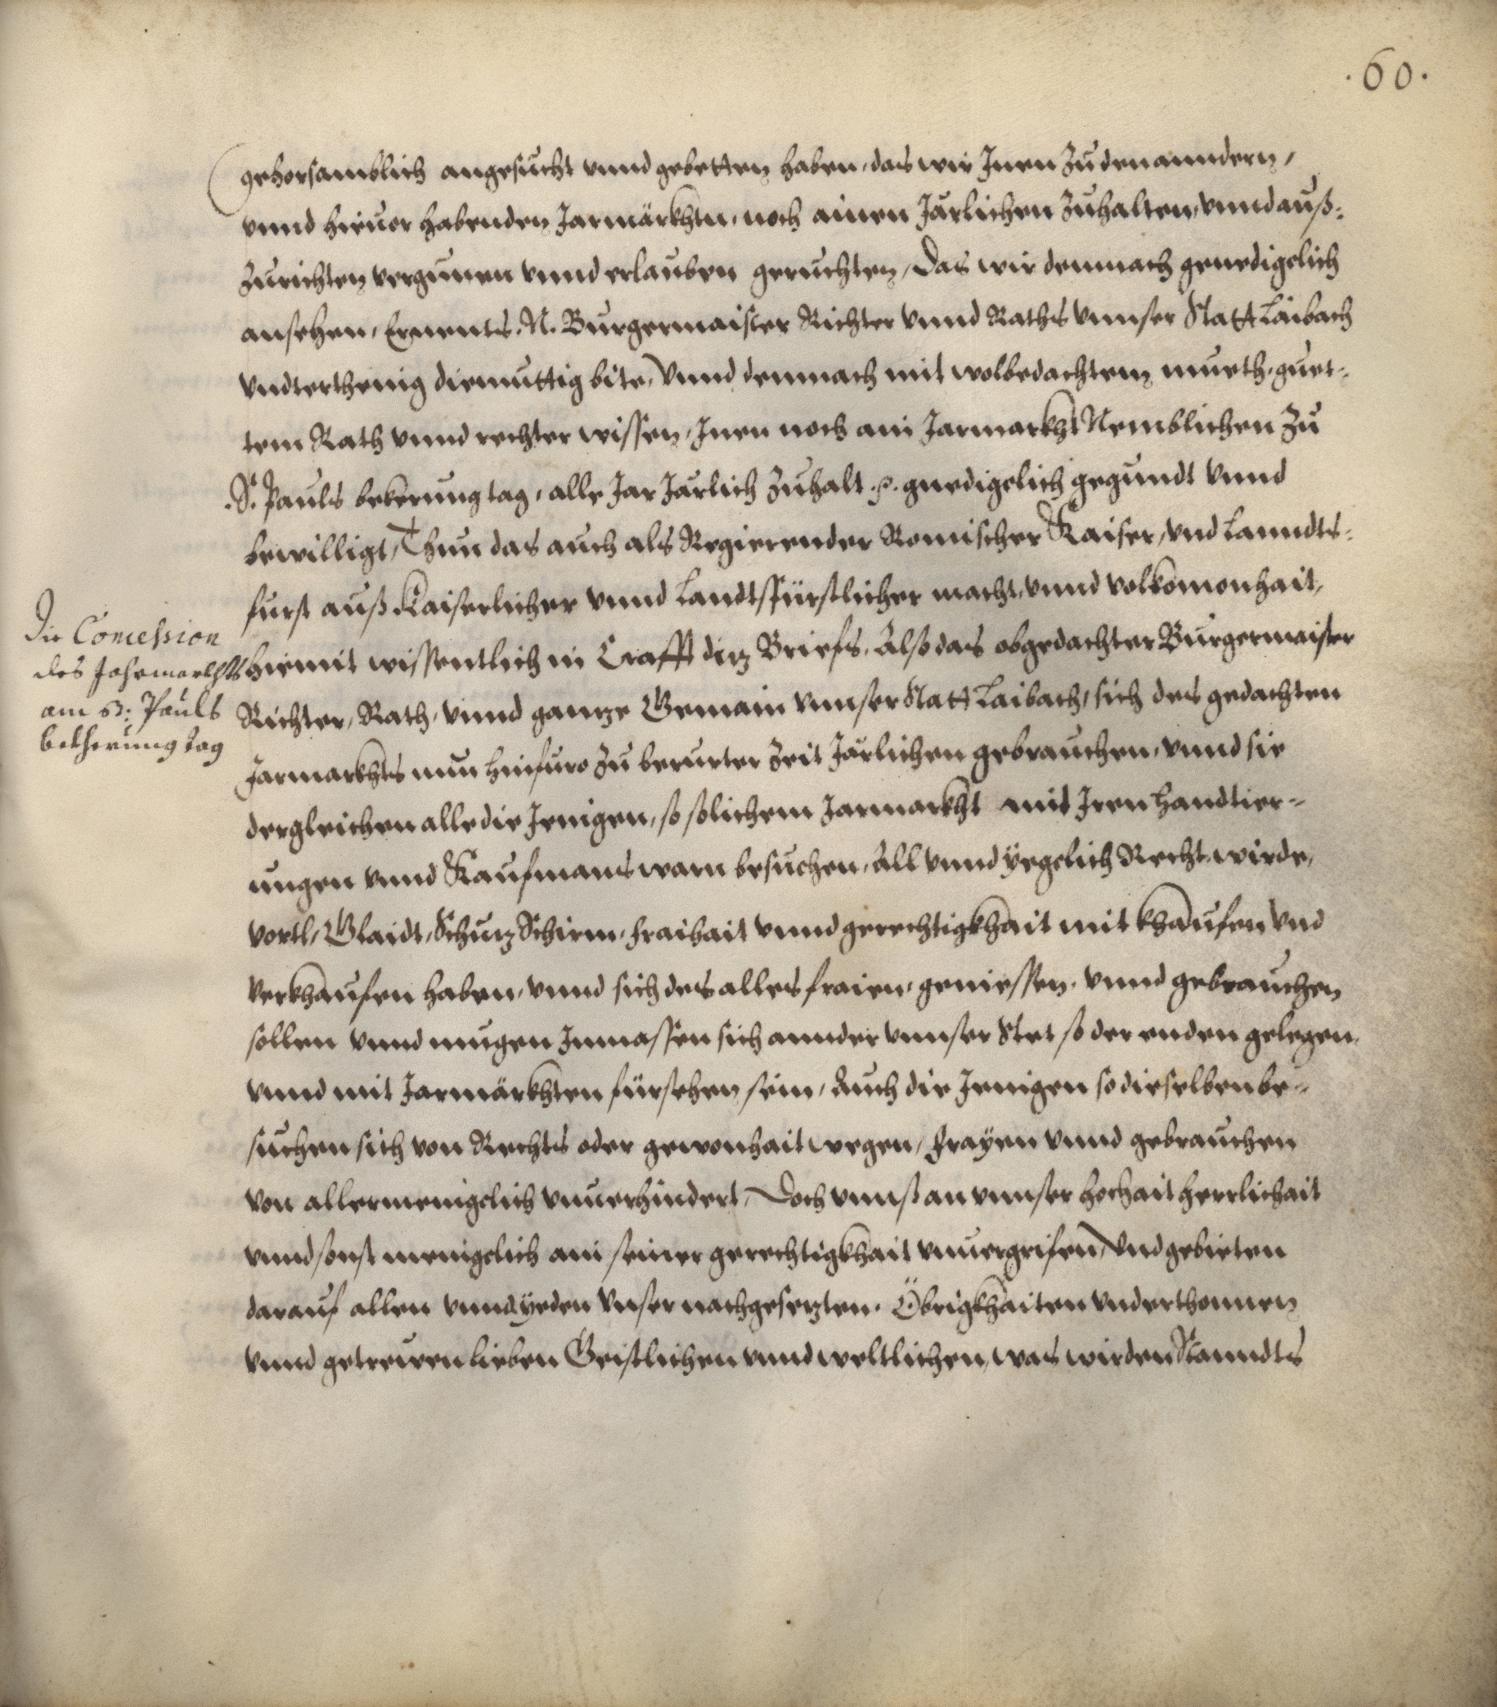 .60.
gehorsamblich angesucht vnnd gebetten haben, das wir Inen zu den anndern,
vnnd hieuor habenden Jarmärkhtn, noch ainen Järlichen zuhalten, vnnd auß-
zurichten vergunnen vnnd erlauben geruchten, Das wir demnach genedigclich
ansehen, Ernents .N. Burgermaister Richter vnnd Raths vnnser Statt Laibach
vndterthenig diemuttig bite, Vnnd demnach mit wolbedachtem mueth, guet-
tem Rath vnnd rechter wissen, Inen noch ain Jarmarkht Nemblichen zu
.St. Pauls bekerung tag, alle Jar Järlich zuhalt .p. gnedigclich gegundt vnnd
bewilligt, Thun das auch als Regierender Romischer Kaiser, vnd Lanndts-
furst auß Kaiserlicher vnnd Landtsfürstlicher macht, vnnd volkomonhait,
Die Concession
des Jahrmarkhts
am St: Pauls
bekherung tag
hiemit wissentlich in Crafft ditz Briefs, Also das obgedachter Burgermaister
Richter, Rath, vnnd gantze Gemain vnnser Statt Laibach, sich des gedachten
Jarmarkhts nun hinfuro zu berurter zeit Järlichen gebrauchen, vnnd sie
dergleichen alle die Jenigen, so solichem Jarmarkht mit Iren handtier-
ungen vnnd Kaufmans warn besuchen, All vnnd yegclich Recht, wirde,
vortl, Glaidt, Schutz Schirm, fraihait vnnd gerechtigkhait mit khaufen vnd
verkhaufen haben, vnnd sich des alles fraien, geniessen, vnnd gebrauchen
sollen vnnd mugen Inmassen sich annder vnnser Stet so der enden gelegen,
vnnd mit Jarmärkhten fürsehen sein, Auch die Jenigen so dieselben be-
suchen sich von Rechts oder gewonhait wegen, frayen vnnd gebrauchen
von allermenigclich vnuerhindert, Doch vnnß an vnnser hochait herrlichait
vnnd sonst menigclich ain seiner gerechtigkhait vnuergrifen, Vnd gebieten
darauf allen vnnd yeden Vnser nachgesetzten. Öbrigkhaiten vnderthonnen
vnnd getrewen lieben Geistlichen vnnd weltlichen, was wirden Stanndts